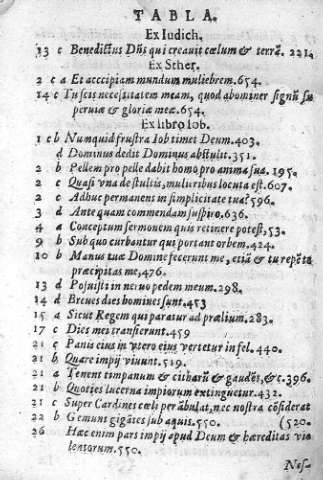 TABLA.
Ex Iudich.
13 c Benedictus Dñs qui creauit cœlum & terrã. 221.
Ex Sther.
2 c a Et acccipiam mundum muliebrem. 654.
14 c Tu scis necessitatem meam, quod abominer signũ su
peruiæ & gloriæ meæ. 654.
Ex libro Iob.
1 c b Numquid frustra Iob timet Deum. 403.
d Dominus dedit Dominus abstulit. 351.
2 b Pellem pro pelle dabit homo pro anima sua. 195.
2 c Quasi vna de stultis, mulieribus locuta est. 607.
2 c Adhuc permanens in simplicitate tua? 596.
3 d Ante quam commendam suspiro. 636.
4 a Conceptum sermonem quis retinere potest, 53.
9 b Sub quo curbantur qui portant orbem. 424.
10 b Manus tuæ Domine fecerunt me, etiã & tu repẽtè
præcipitas me, 476.
13 d Posuisti in neruo pedem meum. 298.
14 d Breues dies homines sunt. 453
15 a Sicut Regem qui paratur ad prælium. 283.
17 c Dies mei transierunt. 459
21 c Panis eius in vtero eius vertetur in fel. 440.
21 b Quare impij viuunt. 519.
21 a Tenent timpanum & citharũ & gaudẽt, &c. 396.
21 b Quoties lucerna impiorum extinguetur. 432.
21 c Super Cardines cœli perãbulat, nec nostra cõsiderat
22 b Gemunt gigãtes sub aquis. 550. (520.
26 Hæc enim pars impij apud Deum & hæreditas vio
lentorum. 550.
Nes-